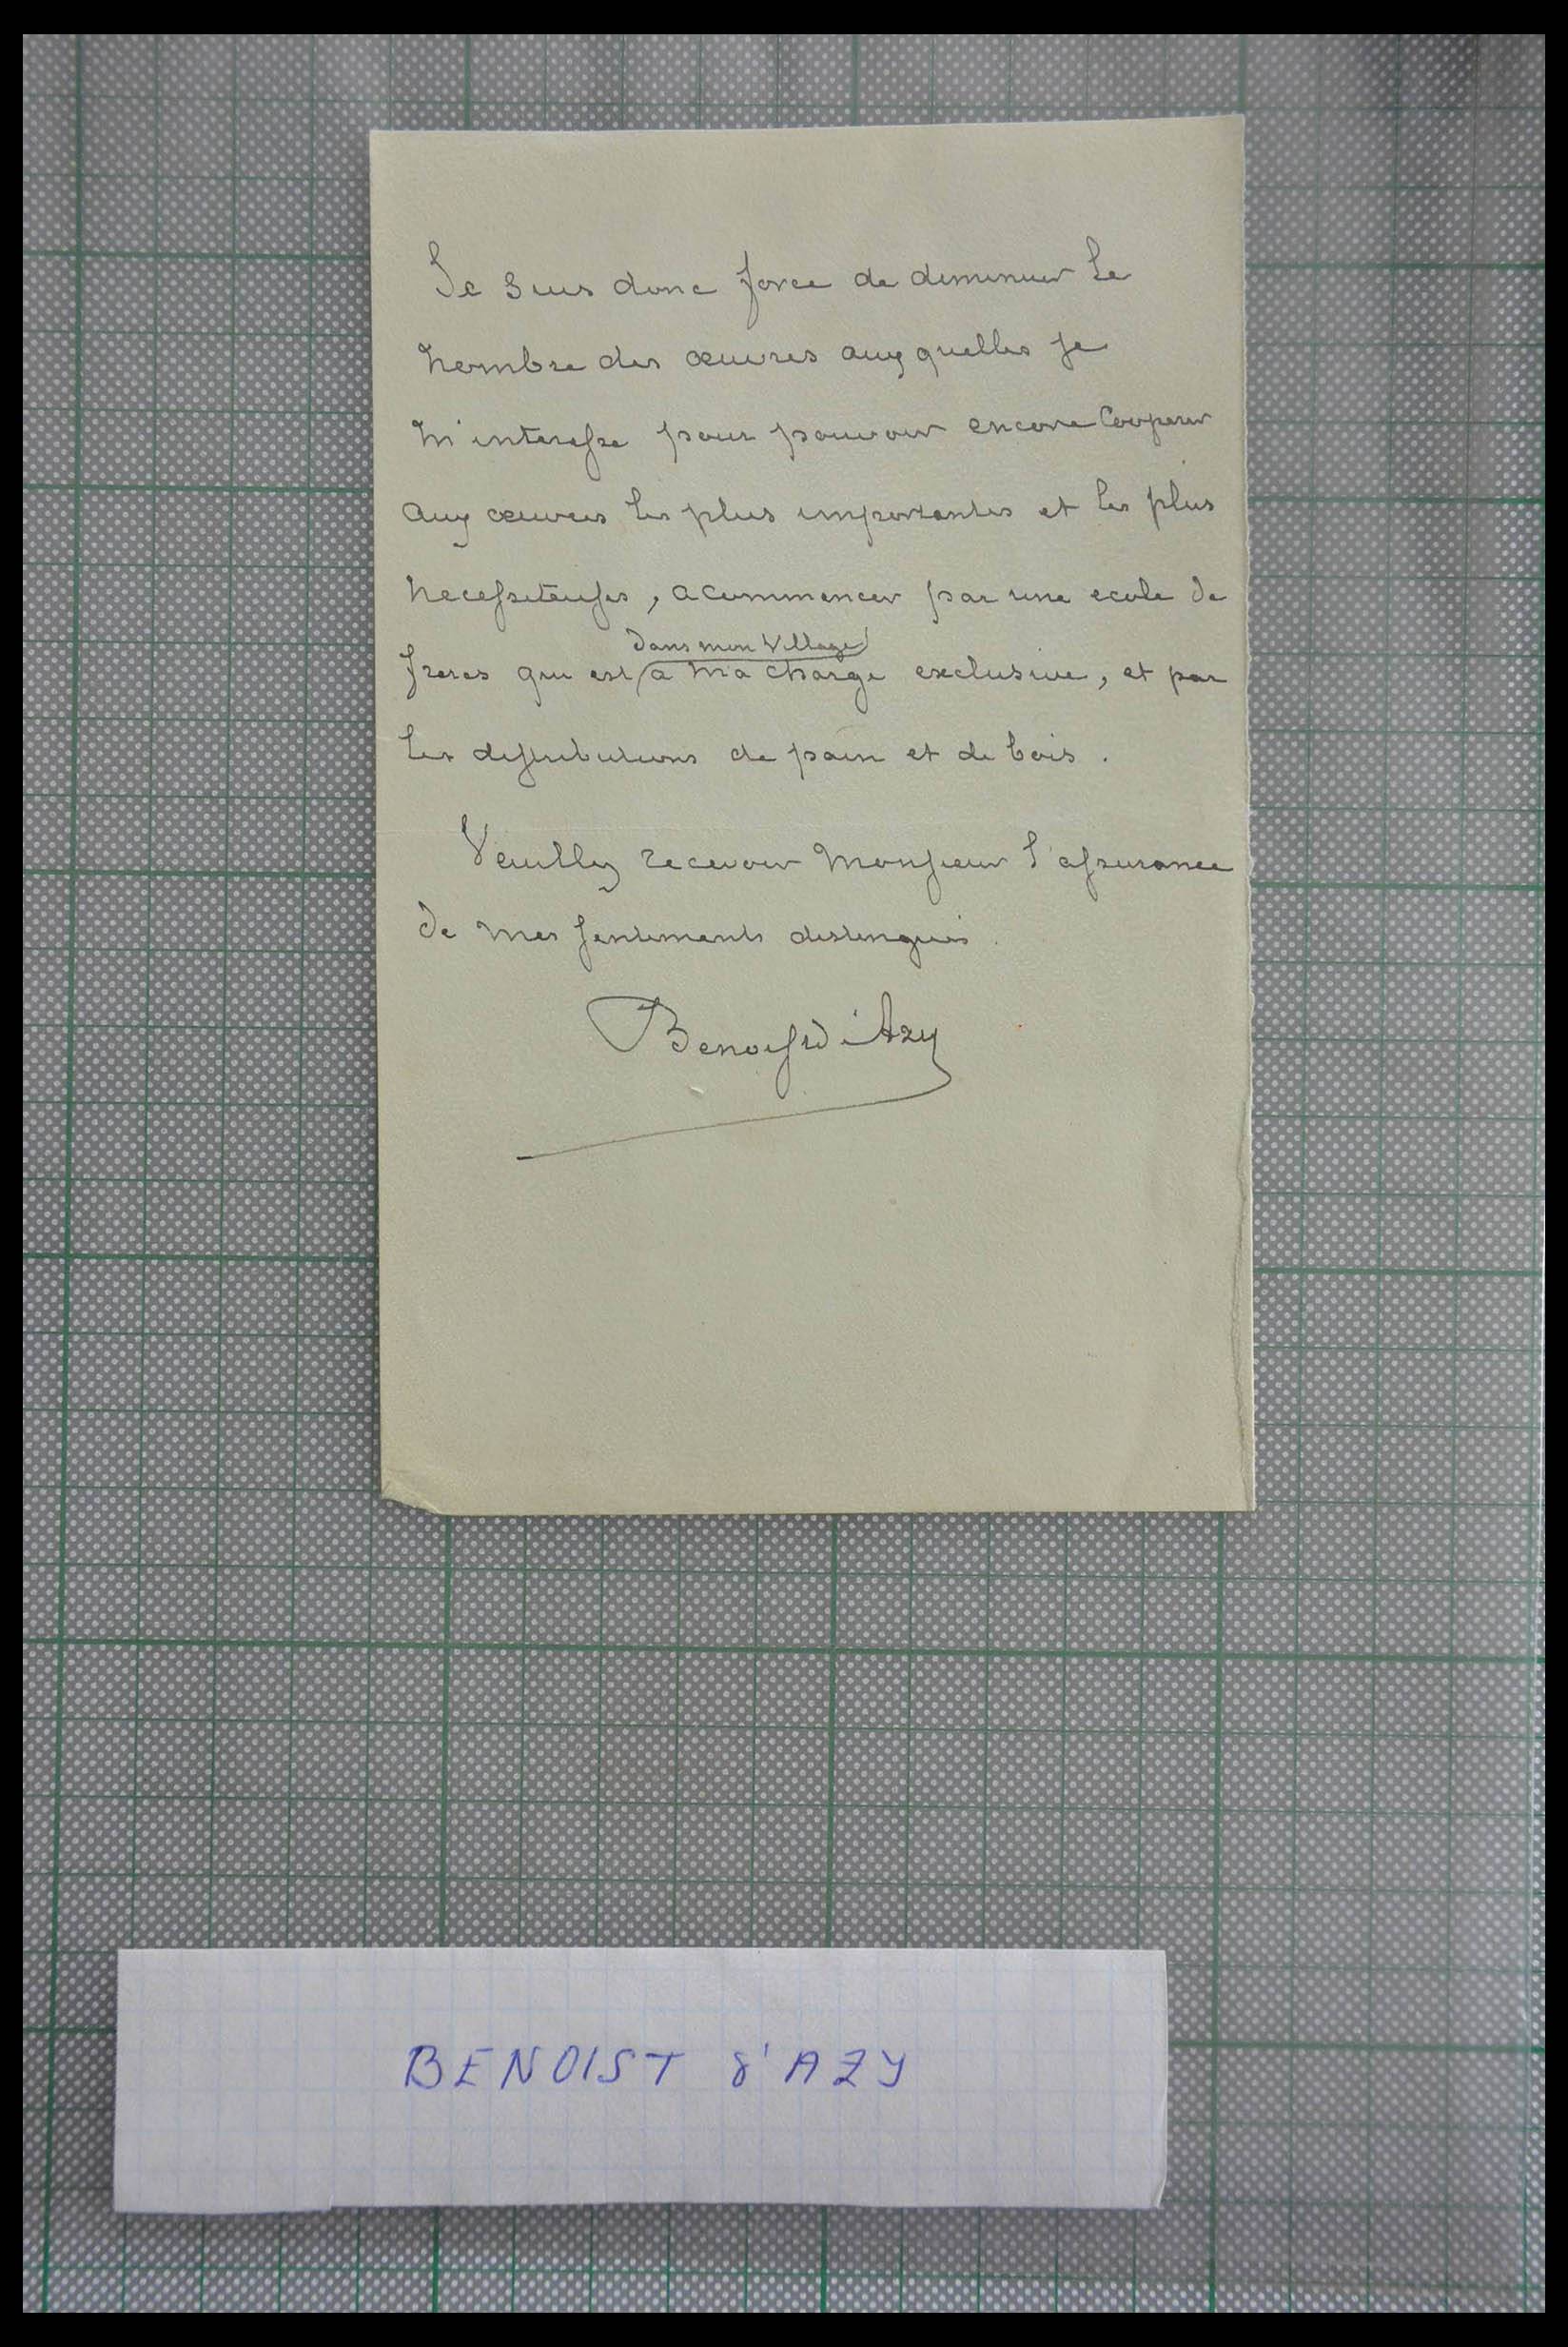 Je suis donc force de diminuer le
nombre des œuvres auxquelles je
m'interesse pour pouvoir encore Cooperer
aux œuvres les plus importantes et les plus
necessiteuses, a commencer par une ecole de
dans mon village
freres qui est a ma charge exclusive, et par
les distributions de pain et de bois.
Veuillez recevoir Monsieur l'assurance
de mes sentiments distingués.
Benoist d'Azy
BENOIST d'AZY